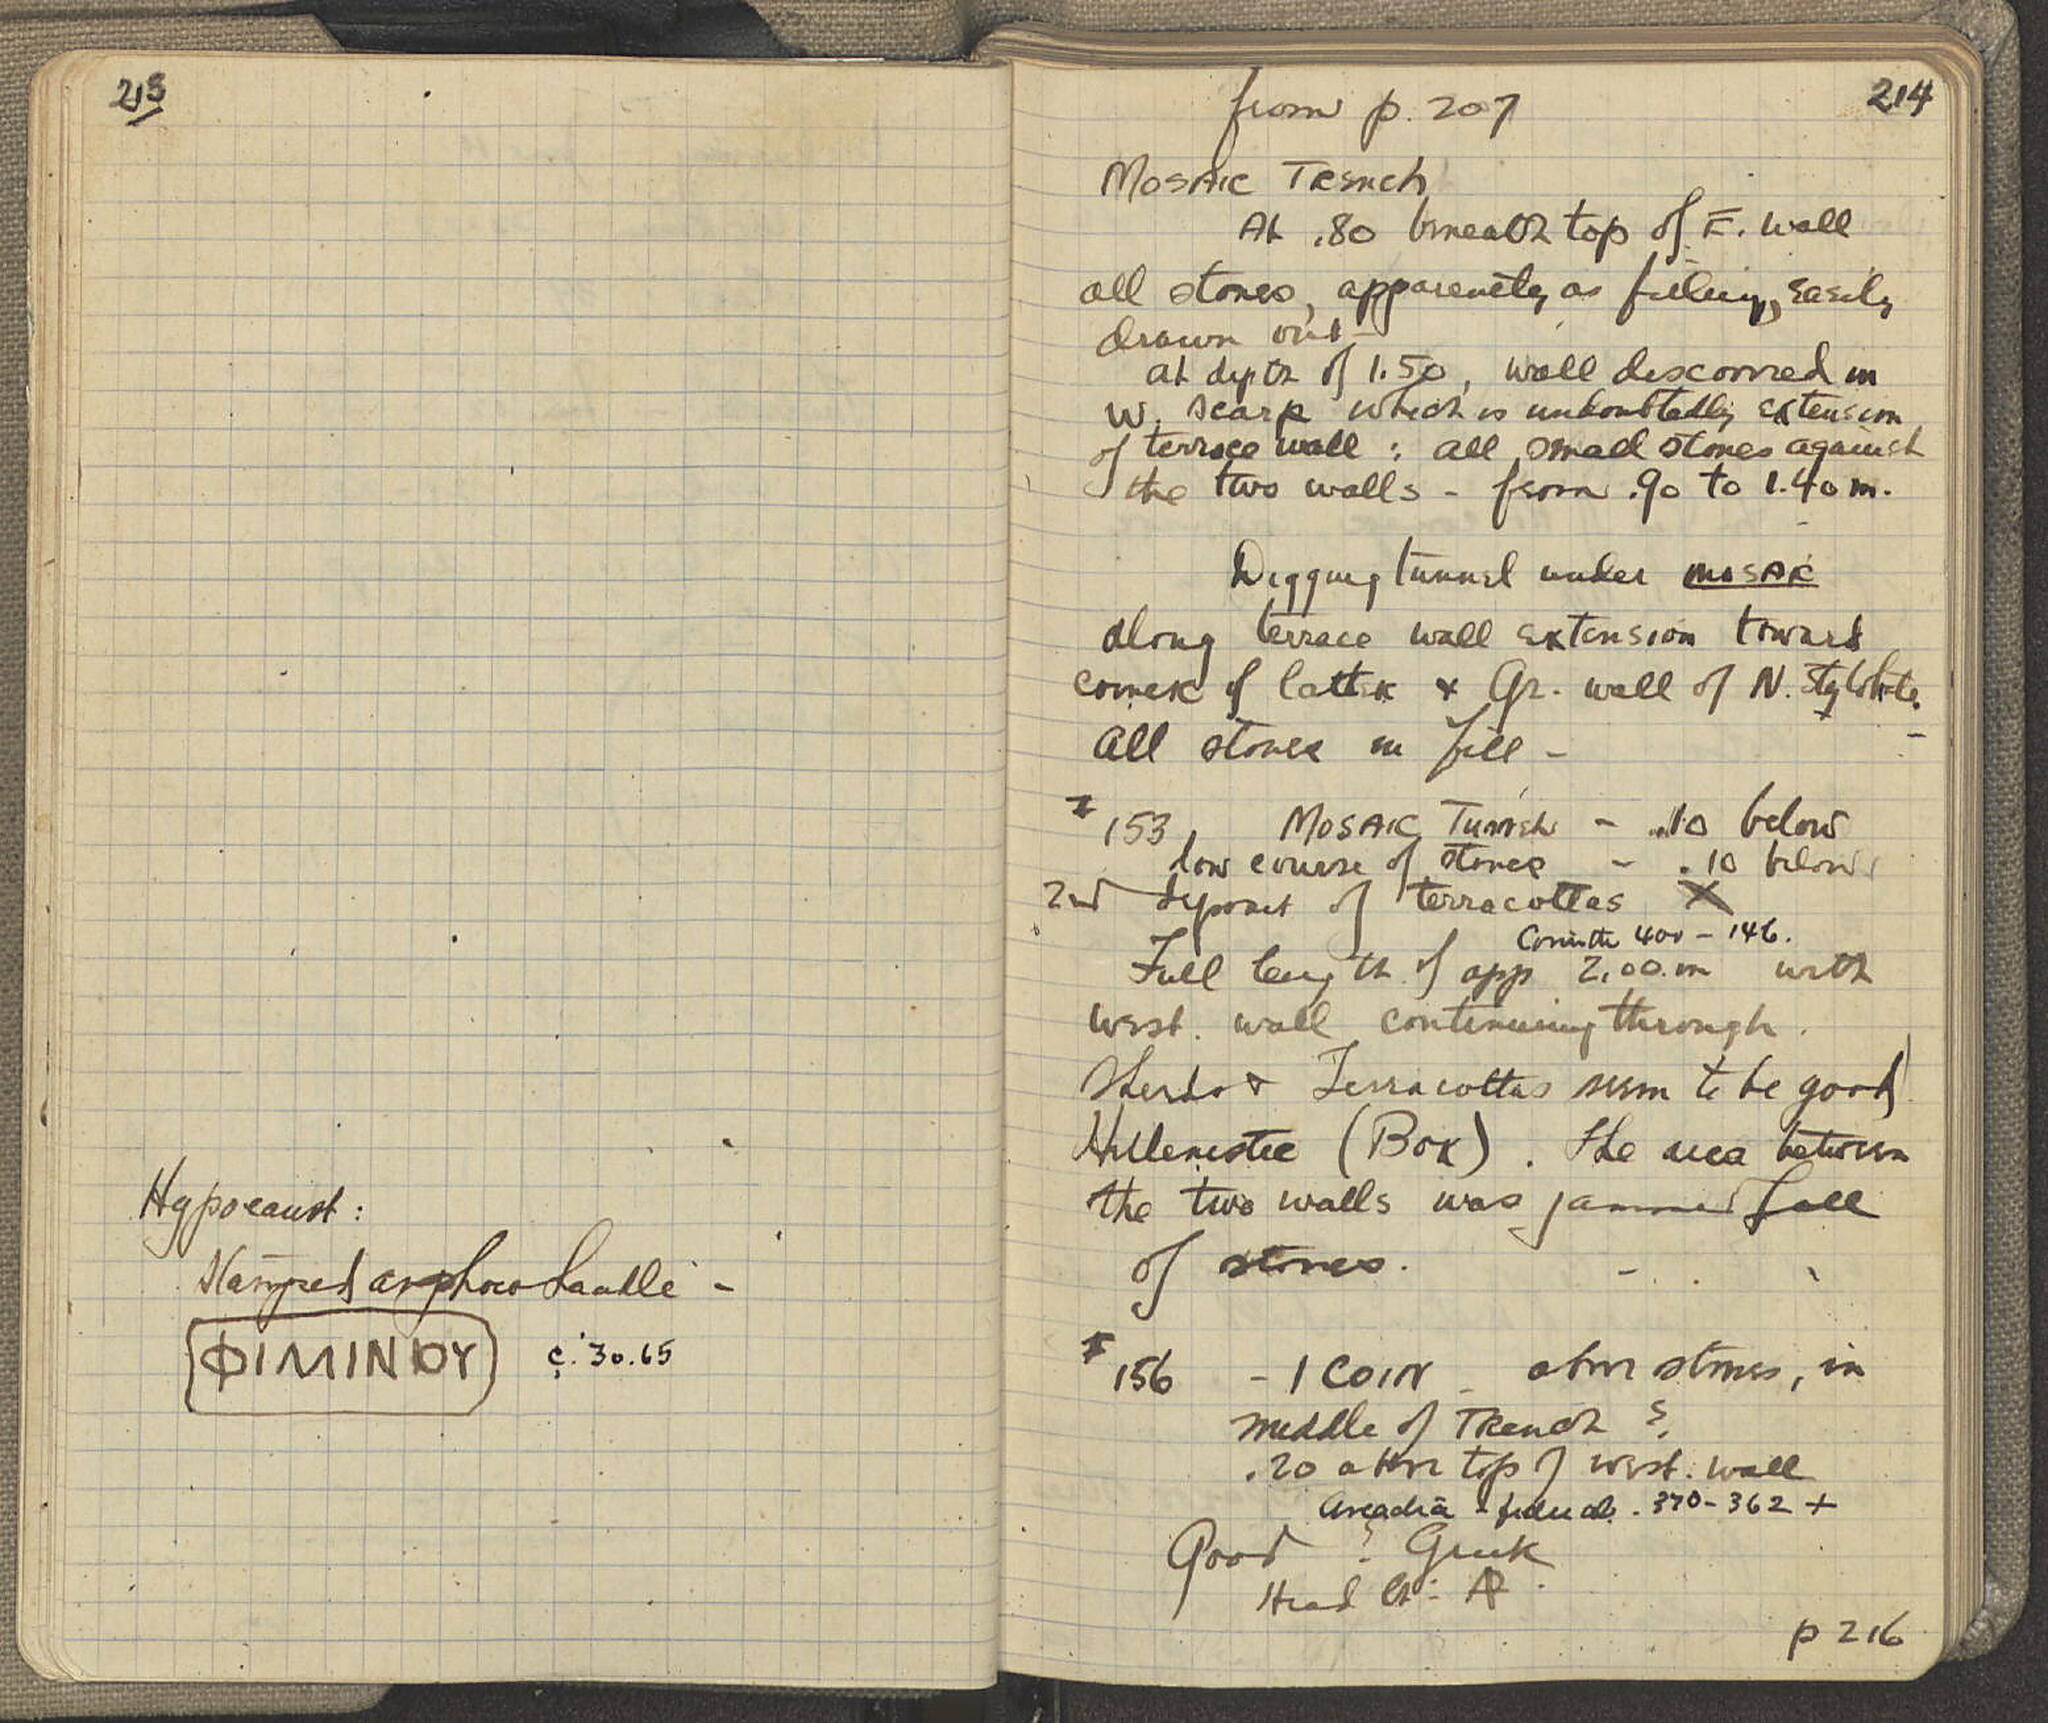 213
Hypocaust:
Stamped amphora handle -
ΦΙΜΙΝΙΟΥ c. 30.65
214
from p. 207
Mosaic Trench
At .80 beneath top of E. wall
all stones, apparently as filling, easily
drawn out -
at depth of 1.50, wall discovered in
W. scarp which is undoubtedly extension
of terrace wall : all small stones against
the two walls - from .90 to 1.40 m.
Digging tunnel under mosaic
along terrace wall extension toward
corner of latter & Gr. wall of N. Stylobate.
All stones in fill -
# 153, Mosaic Tunnel - .10 below
low course of stones - .10 below
2nd deposit of terracottas X
Corinth 400 - 146.
Full length of app 2.00 m with
west. wall continuing through.
Sherds & Terracottas seem to be good
Hellenistic (Box). The area between
the two walls was jammed full
of stones.
# 156 - 1 COIN - above stones, in
middle of Trench ?
.20 above top of west. wall
Arcadia - federal. 370-362 +
Good ? Greek
Head
p 216